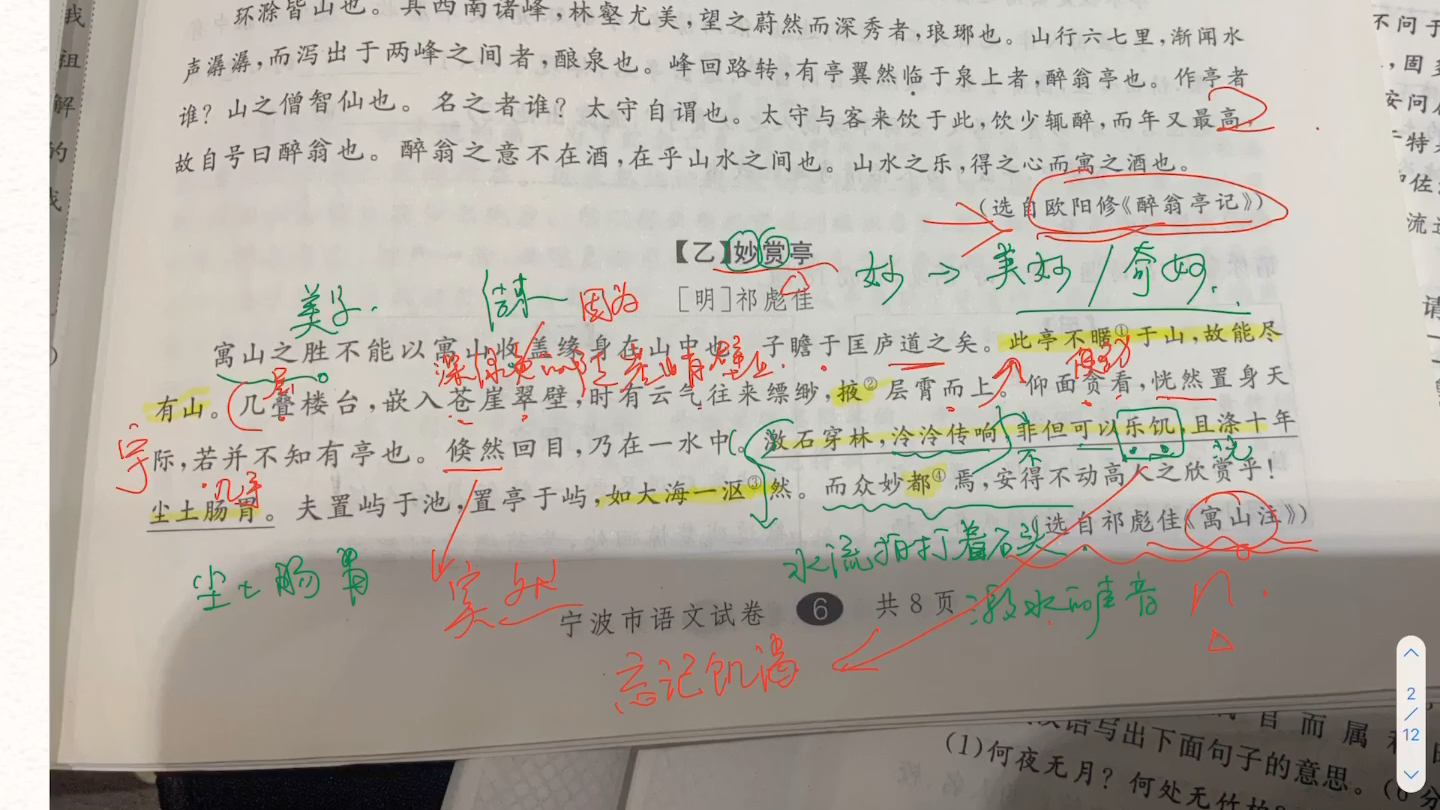 环滁皆山也。其西南诸峰,林壑尤美,望之蔚然而深秀者,琅琊也。山行六七里,渐闻水
声潺潺,而泻出于两峰之间者,酿泉也。峰回路转,有亭翼然临于泉上者,醉翁亭也。作亭者
谁?山之僧智仙也。名之者谁?太守自谓也。太守与客来饮于此,饮少辄醉,而年又最高,
故自号曰醉翁也。醉翁之意不在酒,在乎山水之间也。山水之乐,得之心而寓之酒也。
(选自欧阳修《醉翁亭记》)
【乙】妙赏亭
妙 ⇒ 美妙/奇妙.
[明]祁彪佳
美好.
因为
寓山之胜不能以寓山收,盖缘身在山中也。子瞻于匡庐道之矣。此亭不暱①于山,故能尽
有山。几叠楼台,嵌入苍崖翠壁,时有云气往来缥缈,掖②层霄而上。仰面贪看,恍然置身天
际,若并不知有亭也。倏然回目,乃在一水中。激石穿林,泠泠传响,非但可以乐饥,且涤十年
不
洗
尘土肠胃。夫置屿于池,置亭于屿,如大海一沤③然。而众妙都④焉,安得不动高人之欣赏乎!
(选自祁彪佳《寓山注》)
水流拍打着石头.
尘土肠胃
突然
宁波市语文试卷 6 共8页
忘记饥渴
我
祖
解
的
不问于
安问
流
请
写出下面句子的意思。
(1)何夜无月?何处无竹柏
2
/
12